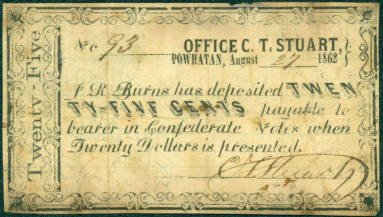 Twenty-Five
No 93
OFFICE C. T. STUART,
POWHATAN, August 27 1862
J R Burns has deposited TWEN
TY-FIVE CENTS payable to
bearer in Confederate Notes when
Twenty Dollars is presented.
C T Stuart